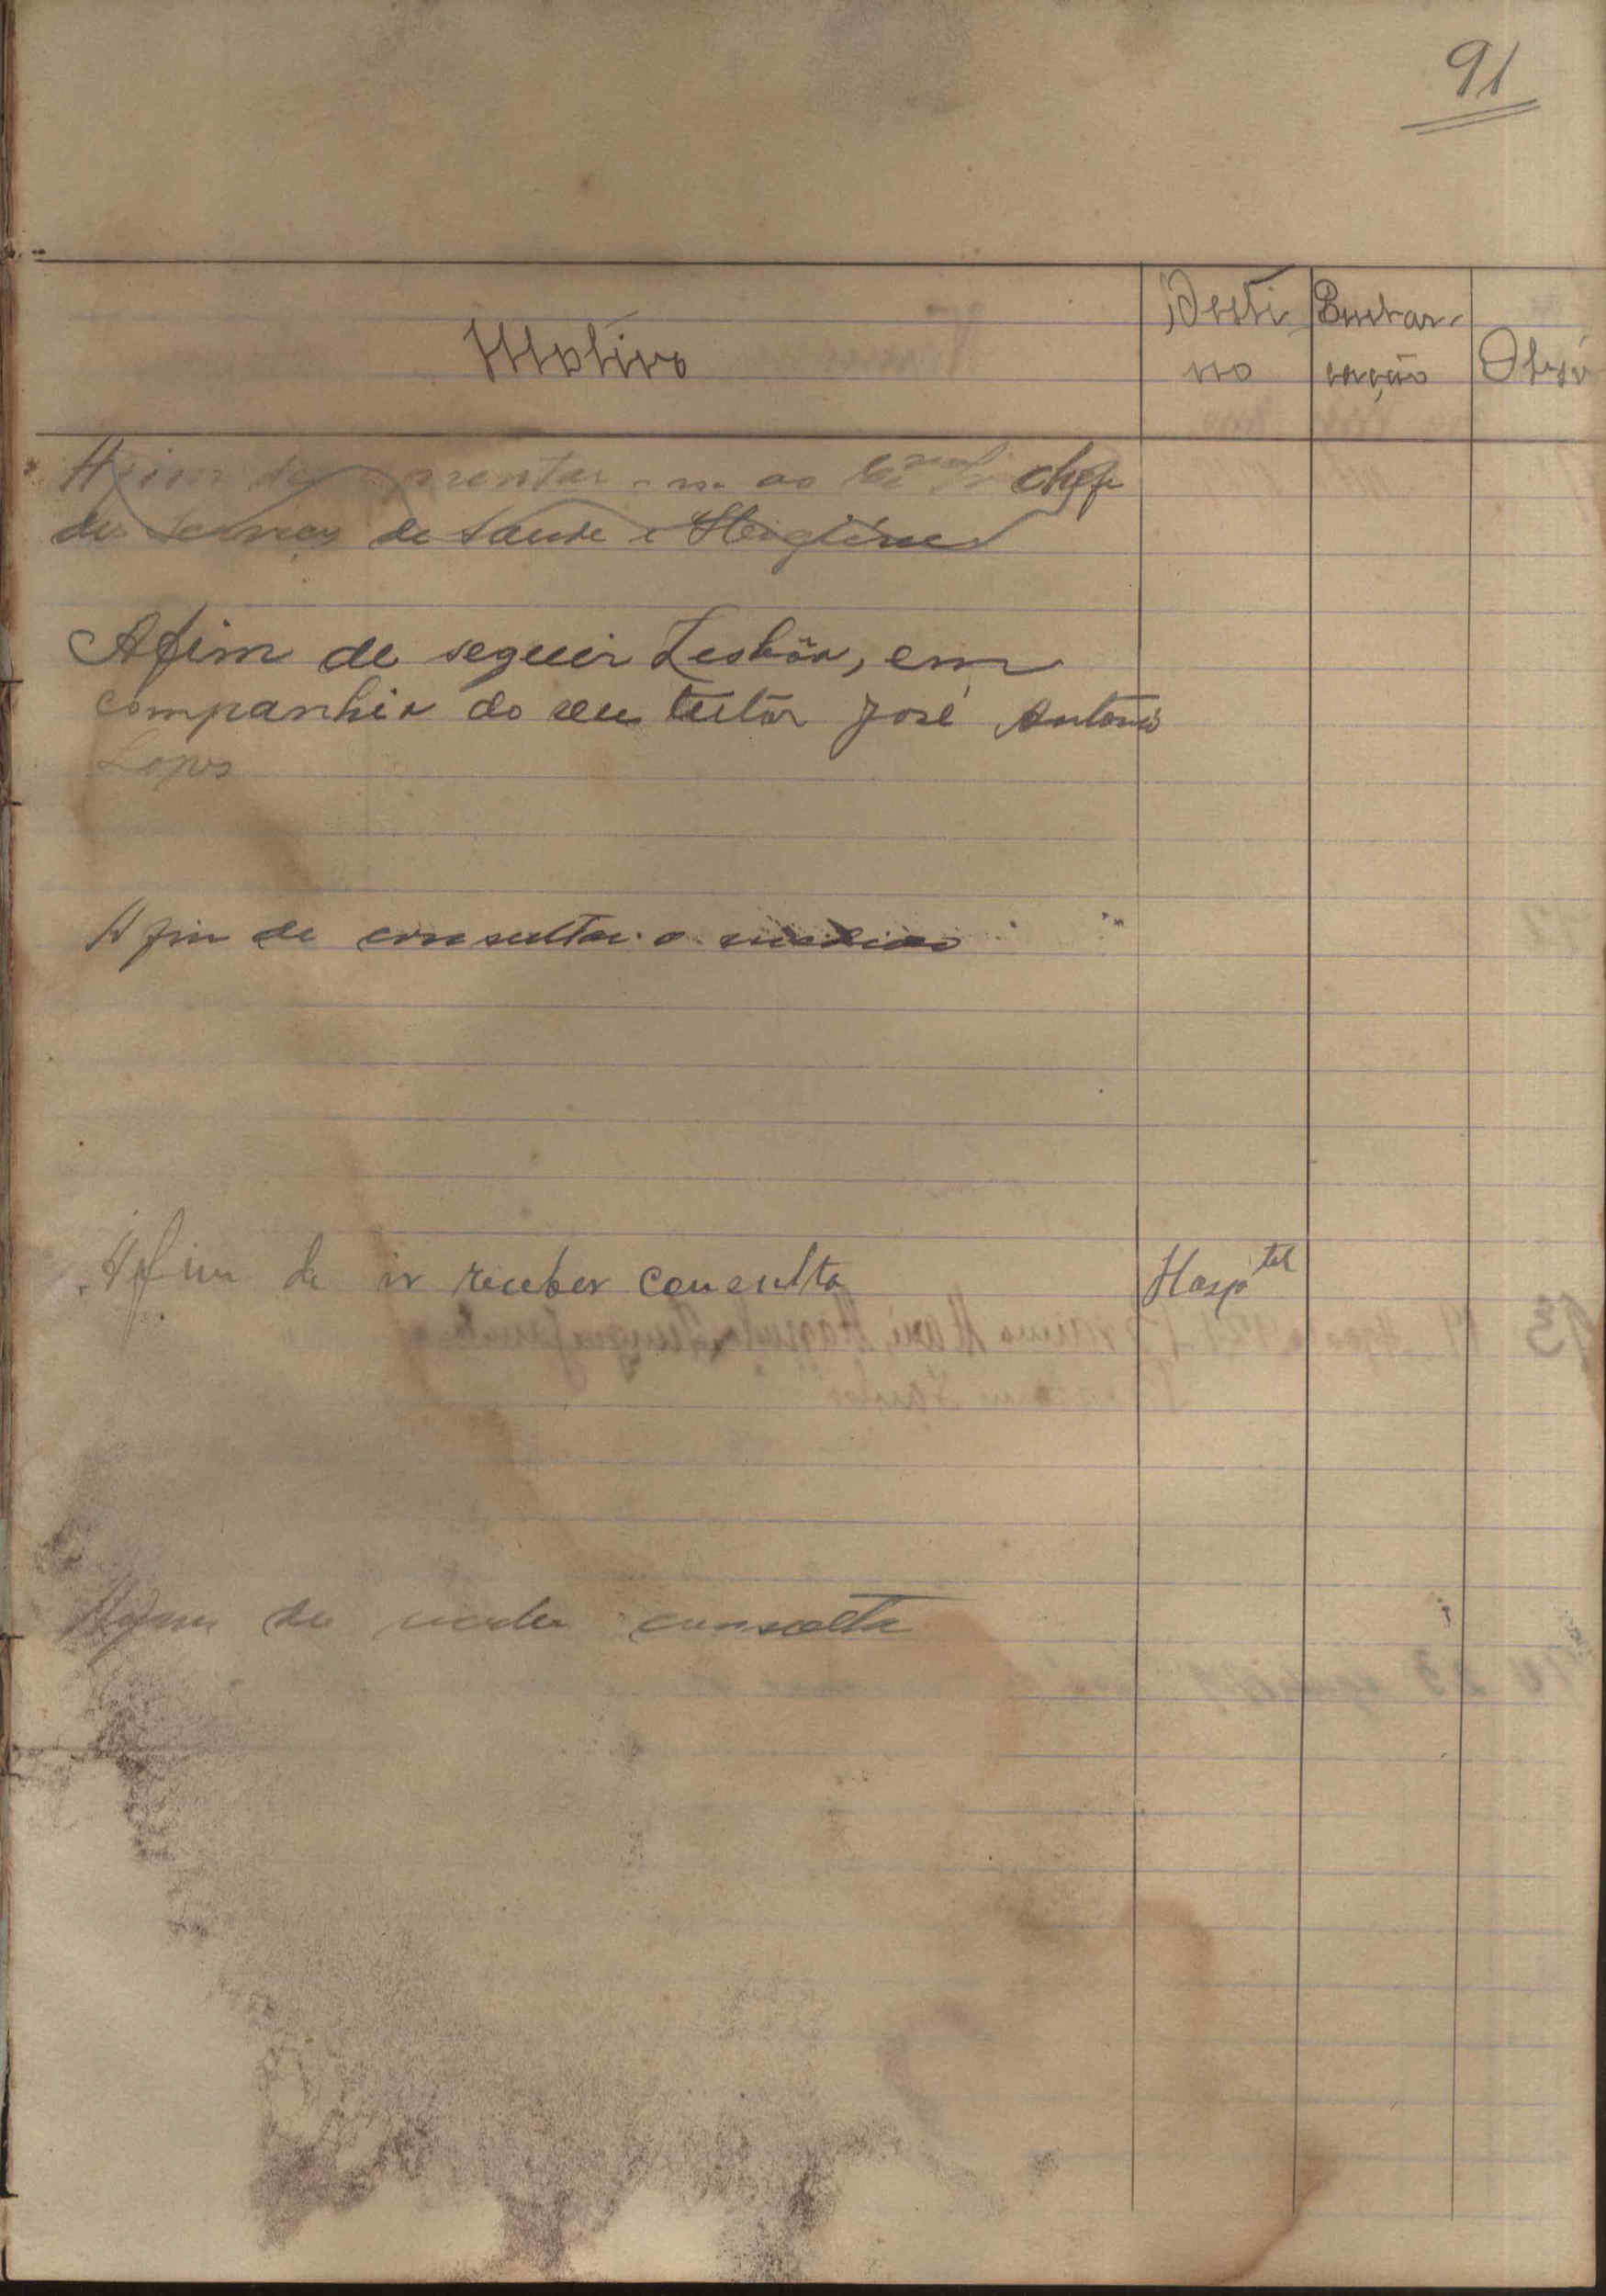 91
Motivo
Desti
no
Embar-
cação
Obsv
Afim de apresentar-se ao Exmo Sr chefe
de Serviços de Saude e Hegiéne
Afim de seguir Lesbôa, em
companhia do seu tutôr José Antonio
Lopes
Afim de consultar o medico
Afim de ir receber consulta
Hospital
Afim de consulta